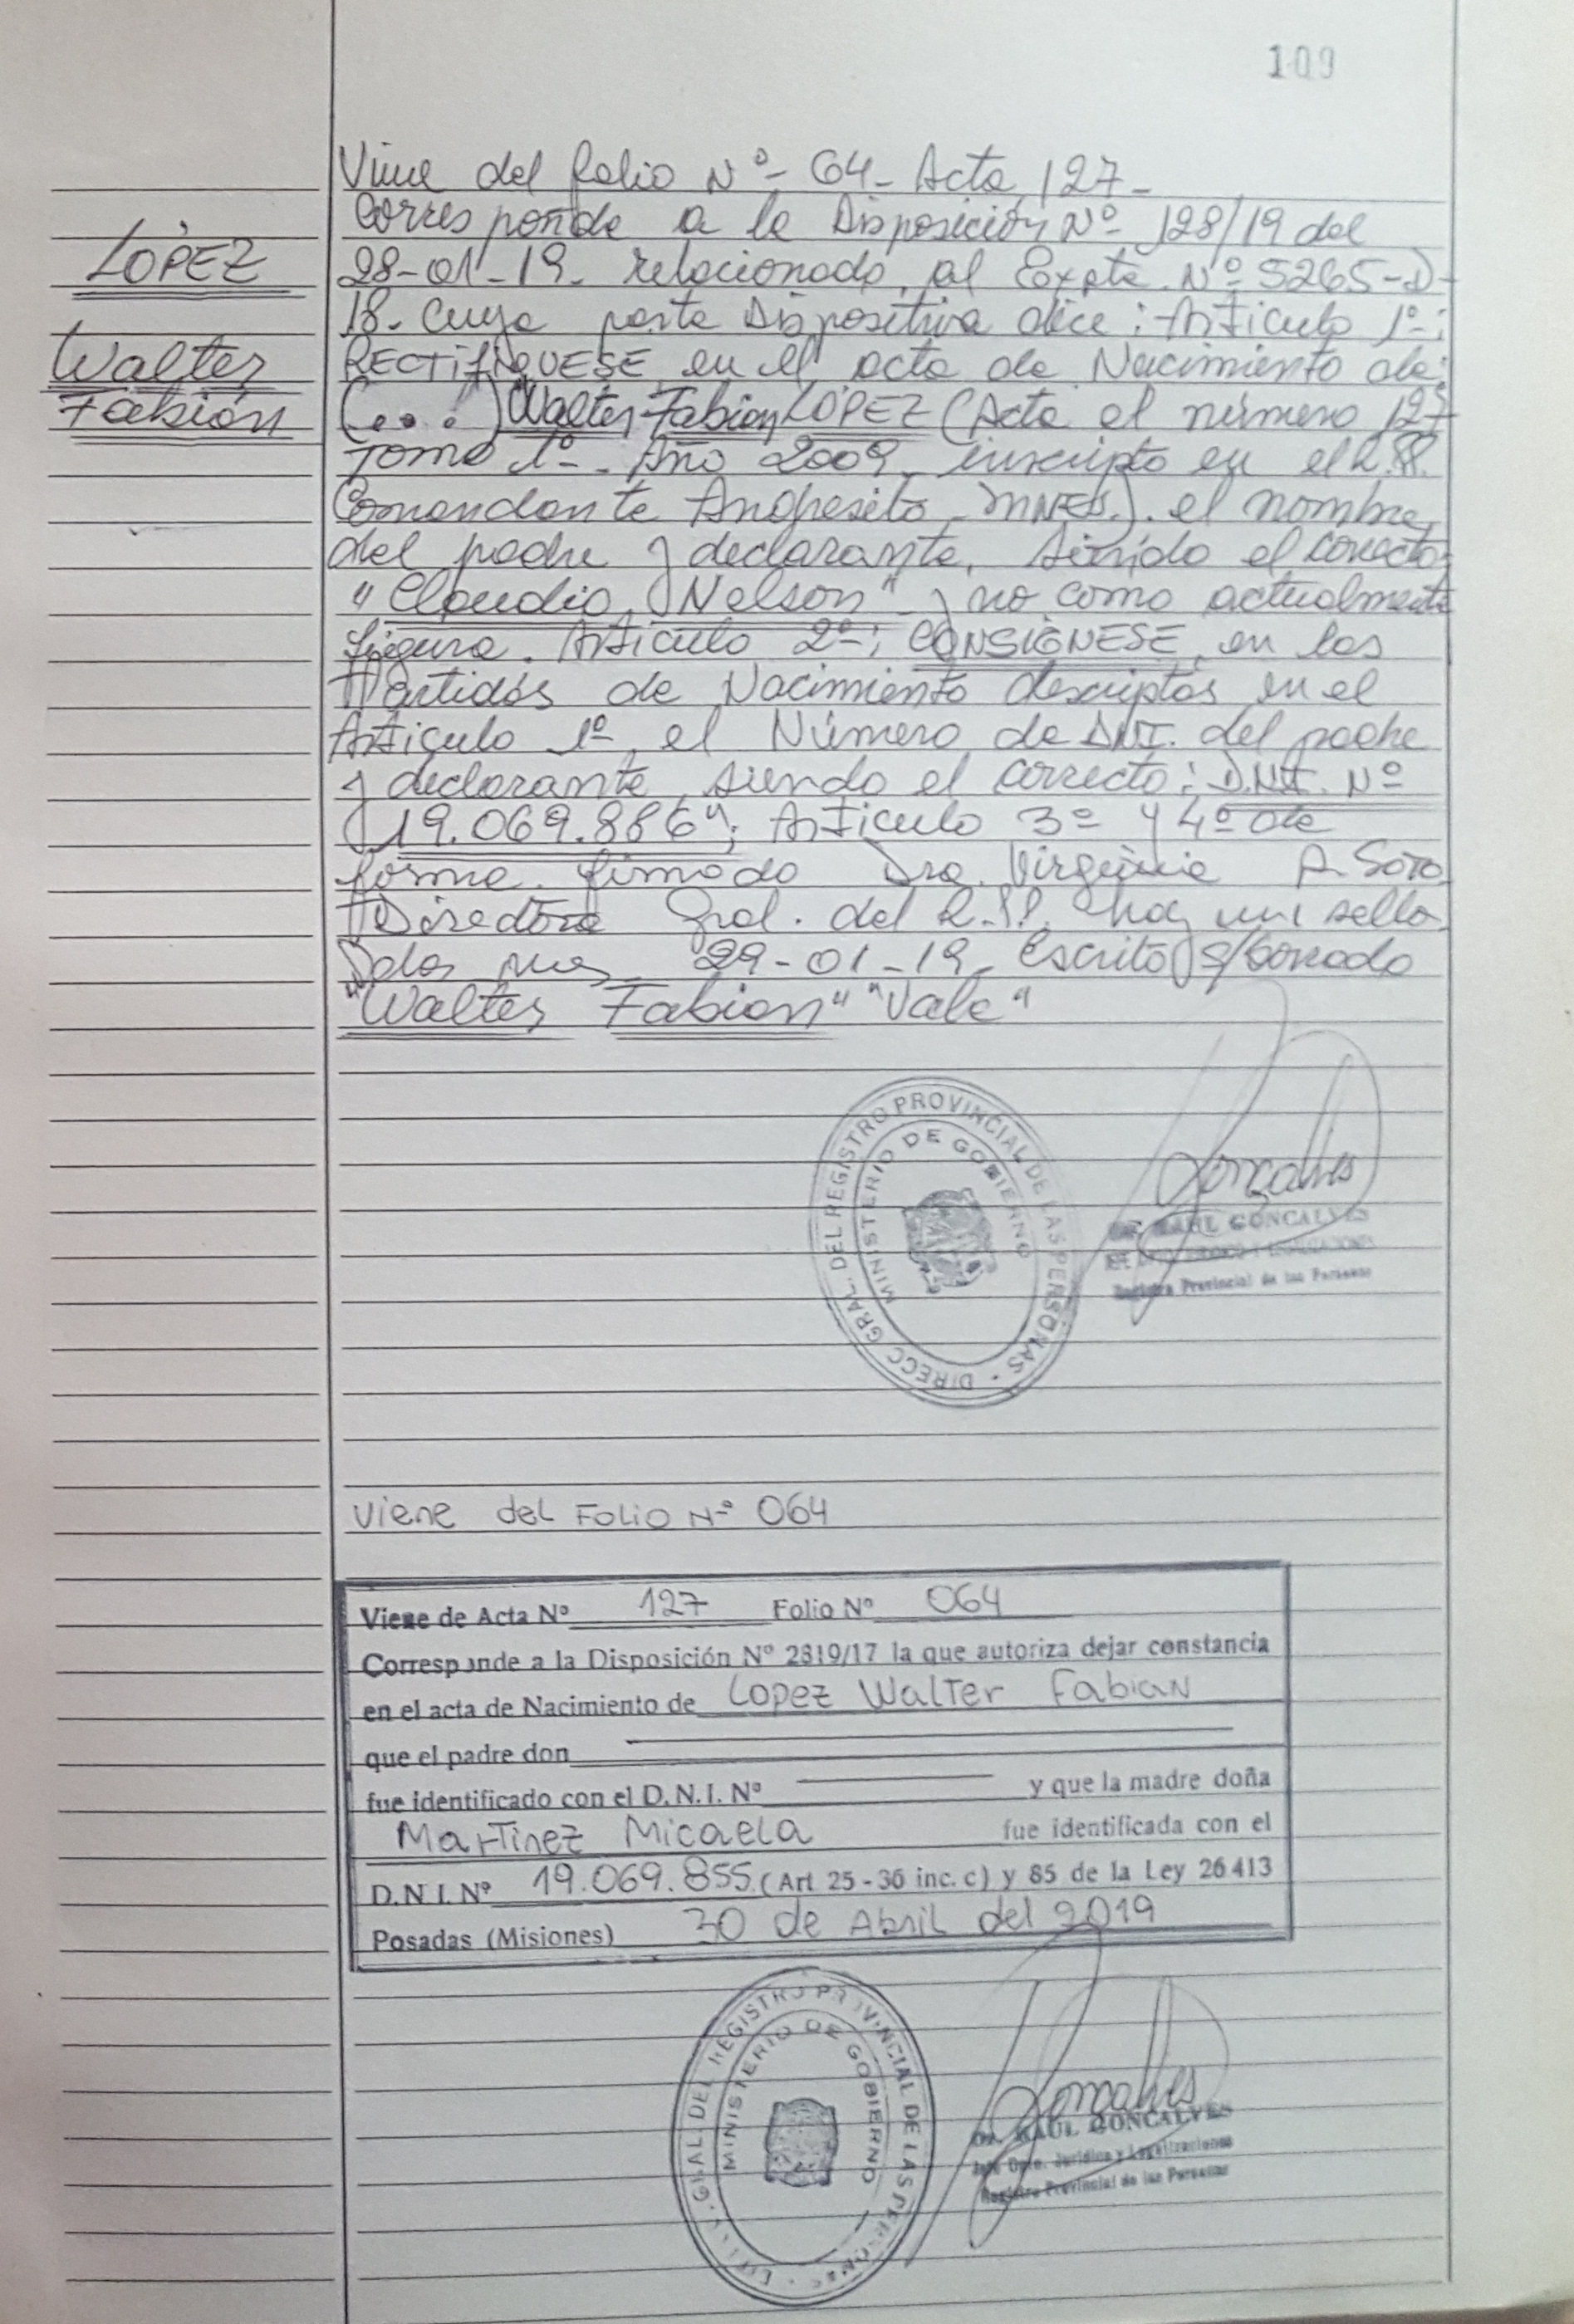 109
LOPEZ
Walter
Fabián
Viene del folio Nº- 64- Acta 127-
Corresponde a la Disposición Nº 128/19 del
28-01-19- relacionado al Expte. Nº 5265-D-
18- cuya parte Dispositiva dice: Articulo 1º:
RECTIFIQUESE en el acta de Nacimiento de:
(...) Walter Fabian LOPEZ (Acta el número 127
Tomo 1º- Año 2009, inscripto en el R.PP.
Comandante Andresito - MNES). el nombre
del padre y declarante, siendo el correcto:
"Claudio Nelson" y no como actualmente
figura. Articulo 2º: CONSIGNESE, en las
Partidas de Nacimiento descriptas en el
Articulo 1º el Número de DNI. del padre
y declarante, siendo el correcto: D.N.I. Nº
19.069.886"; Articulo 3º y 4º de
forma. firmado Dra. Virginia A. Soto
Directora Gral. del R.PP. hay un sello.
Pdas mnes 29-01-19- Escrito s/borrado
"Walter Fabian" "Vale"
DIRECC GRAL. DEL REGISTRO PROVINCIAL DE LAS PERSONAS
MINISTERIO DE GOBIERNO
Gonçalves
RAUL GONCALVES
Registro Provincial de las Personas
Viene del Folio Nº 064
Viene de Acta Nº 127 Folio Nº 064
Corresponde a la Disposición Nº 2819/17 la que autoriza dejar constancia
en el acta de Nacimiento de Lopez Walter Fabian
que el padre don
fue identificado con el D.N.I. Nº y que la madre doña
Martinez Micaela fue identificada con el
D.N.I. Nº 19.069.855 (Art 25-36 inc. c) y 85 de la Ley 26413
Posadas (Misiones) 30 de Abril del 2019
GRAL DEL REGISTRO PROVINCIAL DE LAS PERSONAS
MINISTERIO DE GOBIERNO
Gonçalves
Dr. RAUL GONCALVES
Jefe Dpto. Jurídica y Legalizaciones
Registro Provincial de las Personas